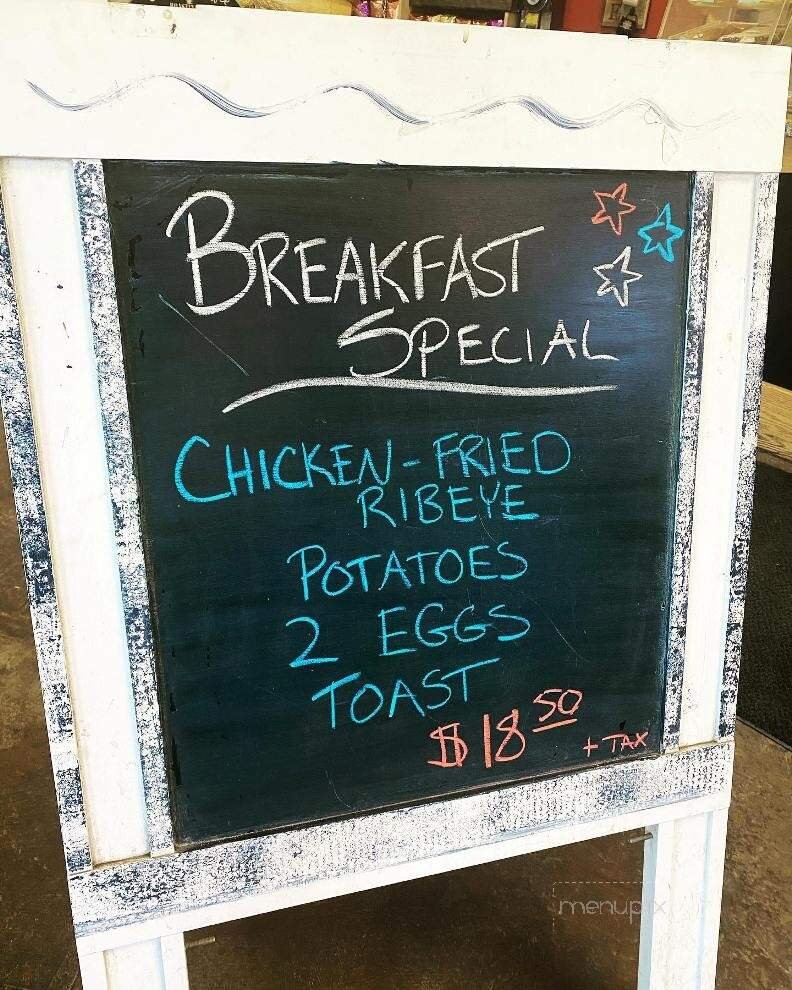 BREAKFAST
SPECIAL
CHICKEN-FRIED
RIBEYE
POTATOES
2 EGGS
TOAST
$18.50
+ TAX
menupix